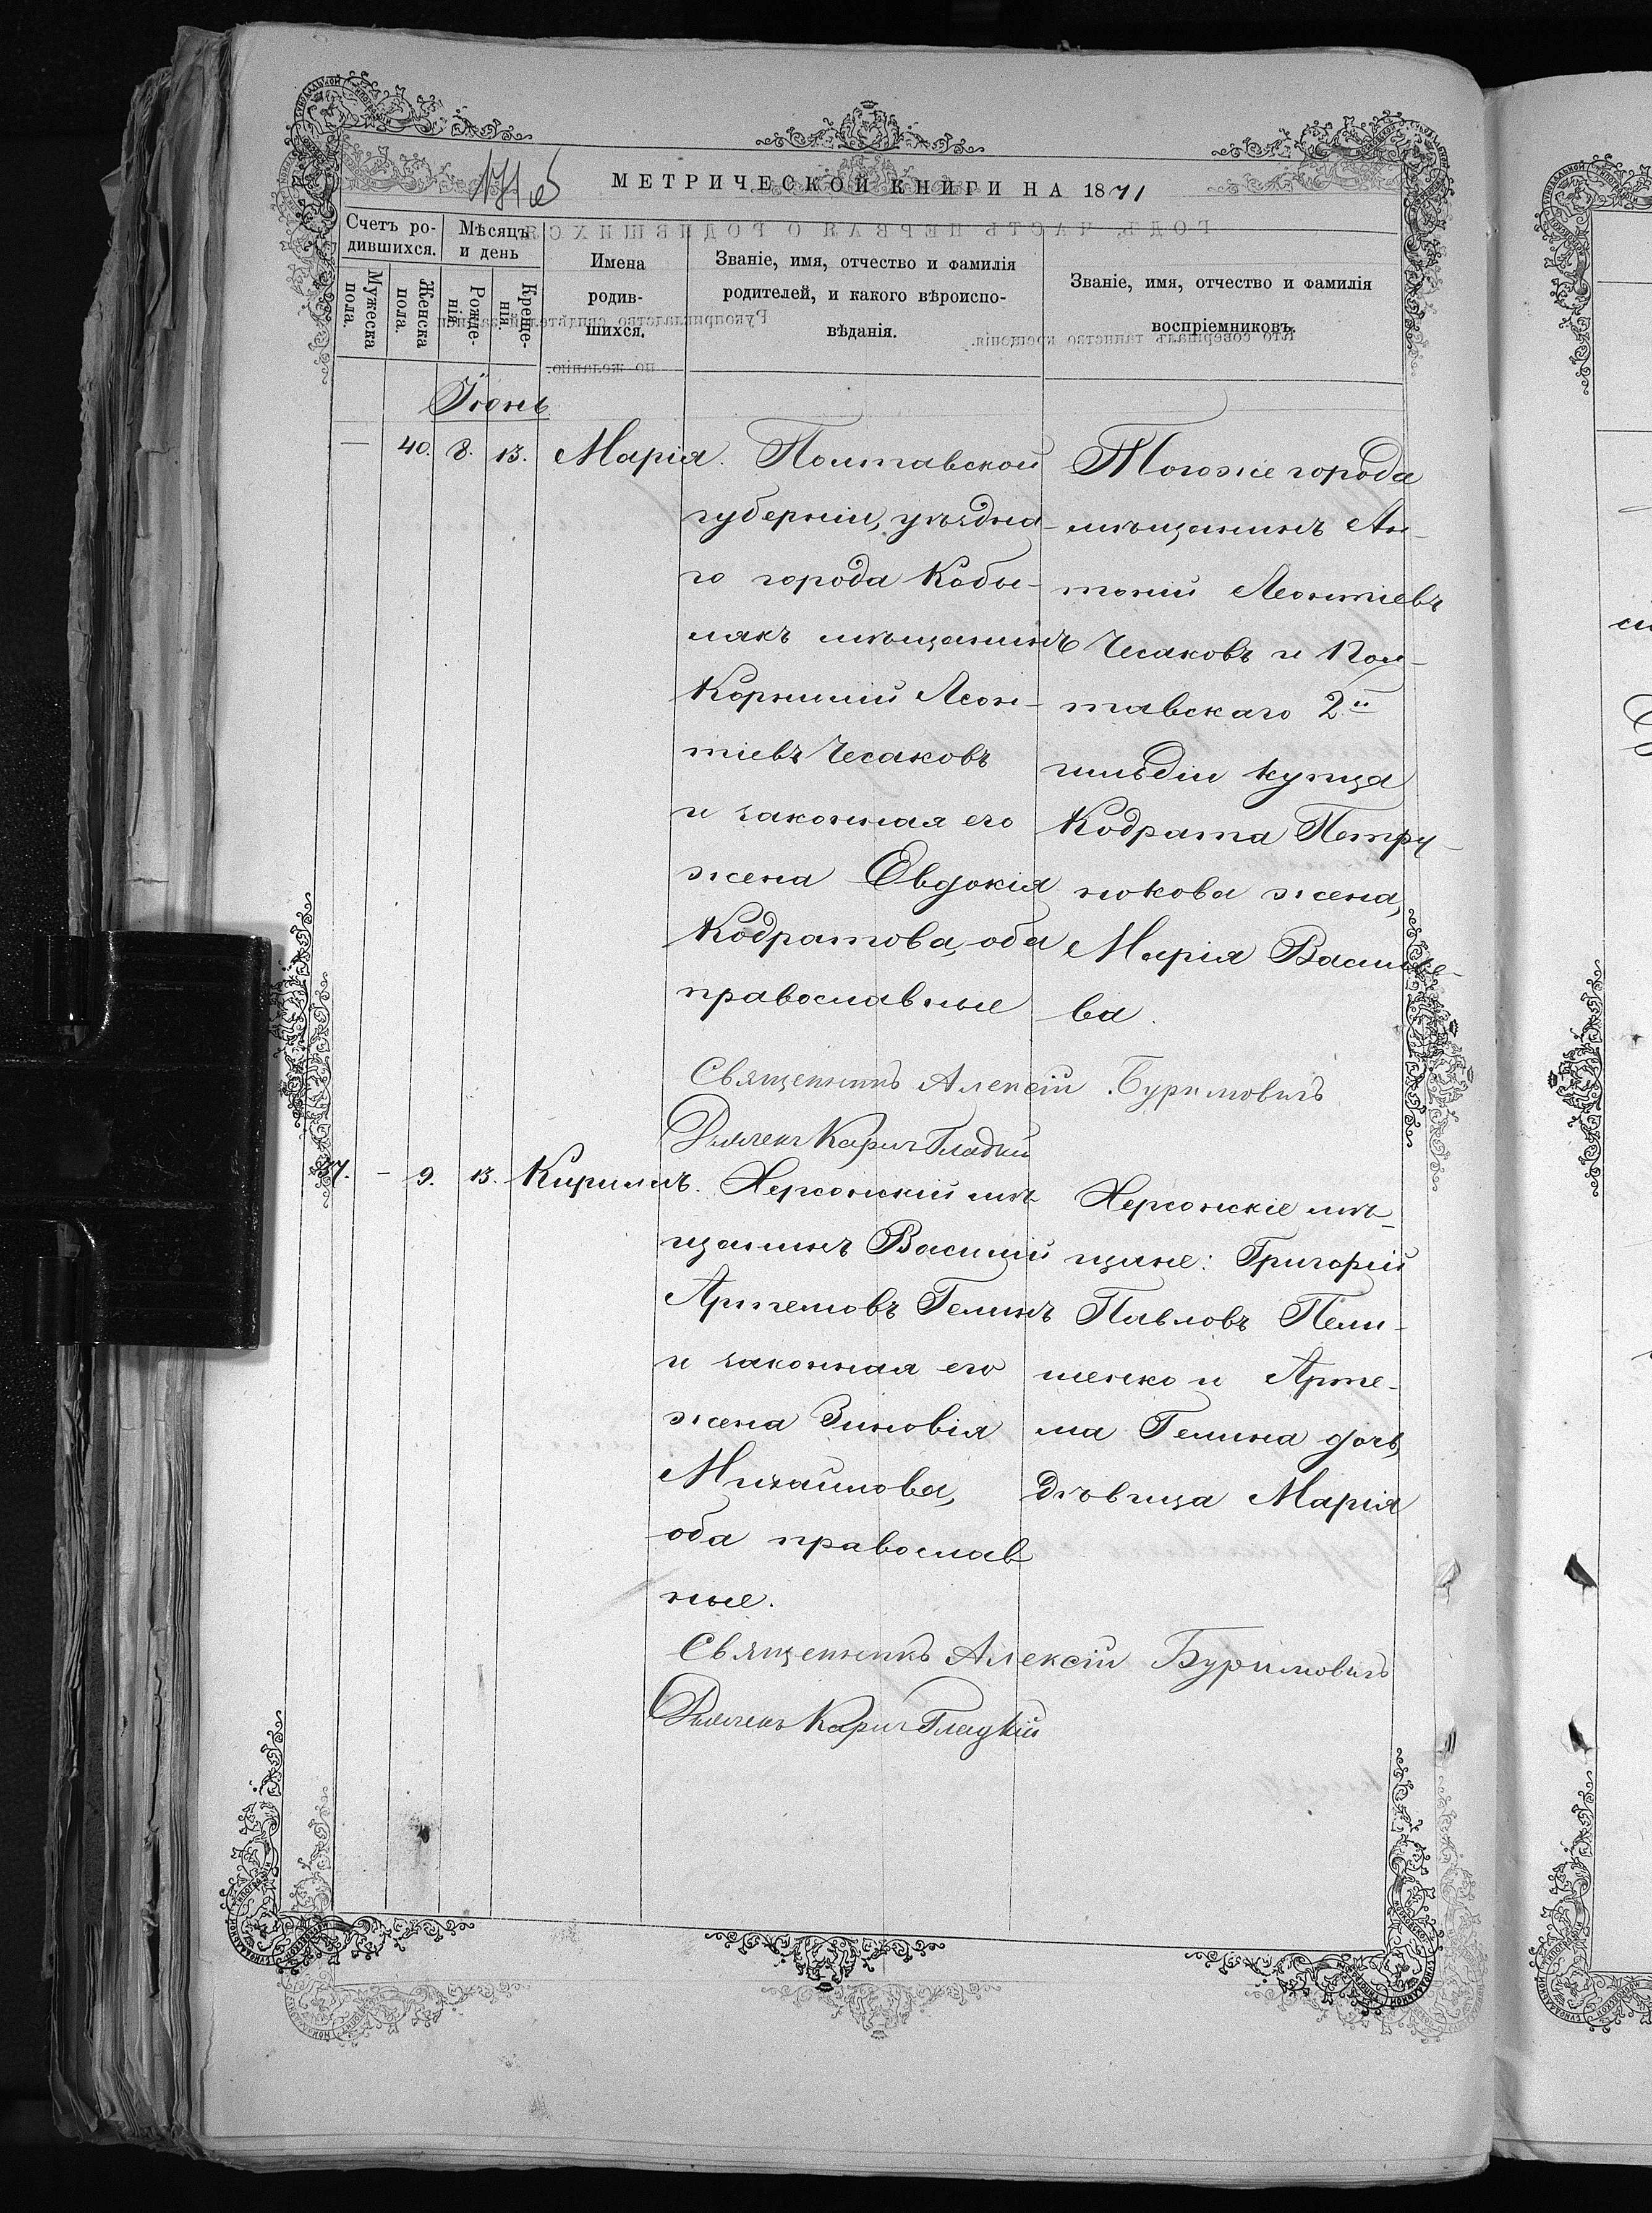 МЕТРИЧЕСКОЙ КНИГИ НА 1871
Счетъ ро-
дившихся.
Мѣсяцъ
и день
Мужеска
пола.
Женска
пола.
Рожде-
нія.
Креще-
нія.
Имена
родив-
шихся.
Званіе, имя, отчество и фамилія
родителей, и какого вѣроиспо-
вѣданія.
Званіе, имя, отчество и фамилія
воспріемниковъ.
Іюнь
— 40. 8. 13. Марія.
Полтавской
губерніи, уѣздна-
го города Кобы-
лякъ мѣщанинъ
Корнилій Леон-
тіевъ Чесаковъ
и законная его
жена Евдокія
Кодратова, оба
православные
Тогоже города
мѣщанинъ Ан-
тоній Леонтіевъ
Чесаковъ и Пол-
тавскаго 2й
гильдіи купца
Кодрата Петру-
нокова жена,
Марія Василье-
ва.
Священникъ Алексій Буримовичъ
Дьячекъ Карпъ Гладкій
37. - 9. 13. Кириллъ.
Херсонскій мѣ
щанинъ Василій
Артемовъ Гелинъ
и законная его
жена Зиновія
Михайлова,
оба православ
ные.
Херсонскіе мѣ-
щане: Григорій
Павловъ Пели-
шенко и Арте-
ма Гелина дочь,
дѣвица Марія
Священникъ Алексій Буримовичъ
Дьячекъ Карпъ Гладкій